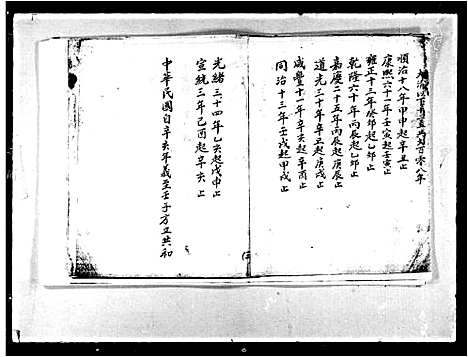 順治十八年甲申起辛丑止
康熙六十一年壬寅起壬寅止
雍正十三年癸卯起乙卯止
乾隆六十年丙辰起乙卯止
嘉慶二十五年丙辰起庚辰止
道光三十年辛丑起庚戌止
咸豐十一年辛亥起辛酉止
同治十三年壬戌起甲戌止
光緒三十四年乙亥起戊申止
宣統三年己酉起辛亥止
中華民國自辛亥年義至壬子方立共和